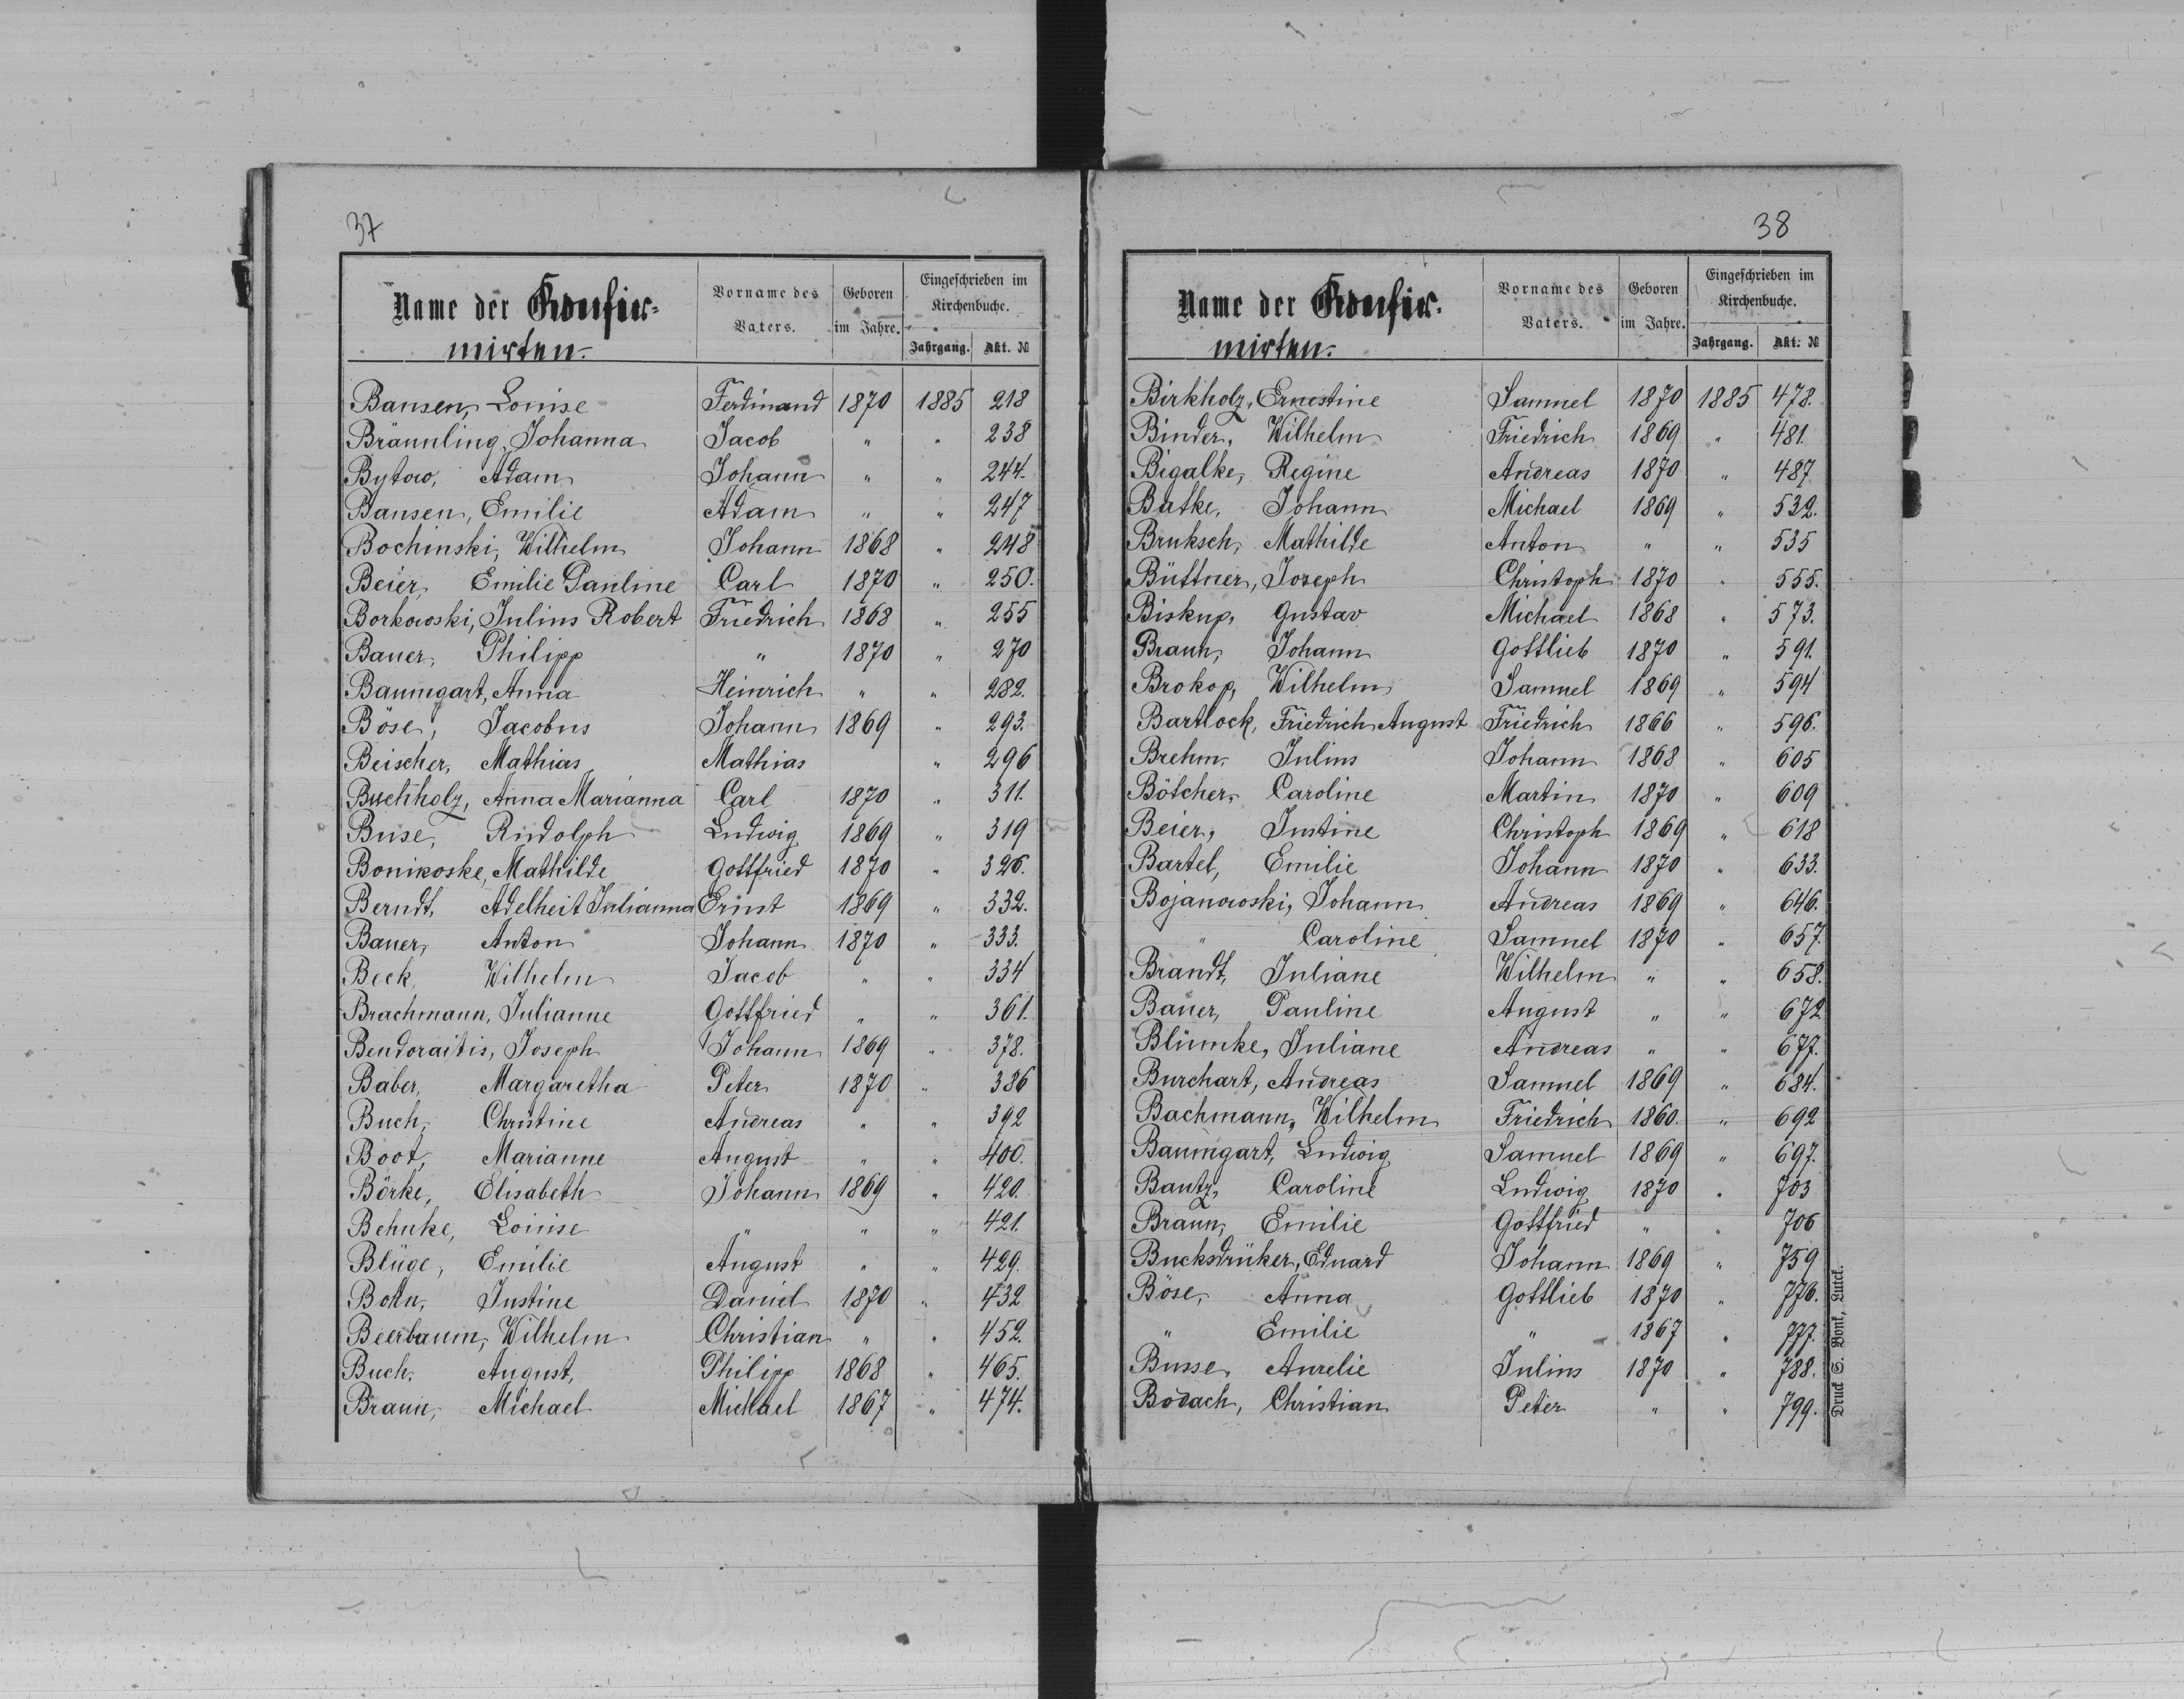 37
Name der Konfir=
mirten.
Vorname des
Vaters.
Geboren
im Jahre.
Eingeschrieben im
Kirchenbuche.
Jahrgang. Akt. №
Bansen, Louise Ferdinand 1870 1885 218
Bräunling, Johanna Jacob " " 238
Bytow, Adam Johann " " 244.
Bansen, Emilie Adam " " 247
Bochinski, Wilhelm Johann 1868 " 248
Beier, Emilie Pauline Carl 1870 " 250.
Borkowski, Julius Robert Friedrich 1868 " 255
Bauer, Philipp " 1870 " 270
Baumgart, Anna Heinrich " " 282.
Böse, Jacobus Johann 1869 " 293.
Beischer, Mathias Mathias " 296
Buchholz, Anna Marianna Carl 1870 " 311.
Buse, Rudolph Ludwig 1869 " 319
Bonikoske, Mathilde Gottfried 1870 " 326.
Berndt, Adelheit Julianna Ernst 1869 " 332.
Bauer, Anton Johann 1870 " 333.
Beck, Wilhelm Jacob " " 334
Brachmann, Julianne Gottfried " " 361.
Bendoraitis, Joseph Johann 1869 " 378.
Baber, Margaretha Peter 1870 " 386
Buch, Christine Andreas " " 392
Boot, Marianne August " " 400.
Börke, Elisabeth Johann 1869 " 420.
Behnke, Louise " " " 421.
Blüge, Emilie August " " 429.
Bohn, Justine Daniel 1870 " 432
Beerbaum, Wilhelm Christian " " 452.
Buch, August, Philipp 1868 " 465.
Braun, Michael Michael 1867 " 474.
38
Name der Konfir-
mirten.
Vorname des
Vaters.
Geboren
im Jahre.
Eingeschrieben im
Kirchenbuche.
Jahrgang. Akt. №
Birkholz, Ernestine Samuel 1870 1885 478.
Binder, Wilhelm Friedrich 1869 " 481.
Bigalke, Regine Andreas 1870 " 487
Batke, Johann Michael 1869 " 532.
Bruksch, Mathilde Anton " " 535
Büttner, Joseph Christoph 1870 " 555.
Biskup, Gustav Michael 1868 " 573.
Braun, Johann Gottlieb 1870 " 591.
Brokop, Wilhelm Samuel 1869 " 594
Bartlock, Friedrich August Friedrich 1866 " 596.
Brehm, Julius Johann 1868 " 605
Bötcher, Caroline Martin 1870 " 609
Beier, Justine Christoph 1869 " 618
Bartel, Emilie Johann 1870 " 633.
Bojanowski, Johann Andreas 1869 " 646.
" Caroline Samuel 1870 " 657.
Brandt, Juliane Wilhelm " " 658.
Bauer, Pauline August " " 672
Blümke, Juliane Andreas " " 677.
Burchart, Andreas Samuel 1869 " 684.
Bachmann, Wilhelm Friedrich 1860. " 692
Baumgart, Ludwig Samuel 1869 " 697.
Bautz, Caroline Ludwig 1870 " 703
Braun, Emilie Gottfried " " 706
Bucksdrüker, Eduard Johann 1869 " 759
Böse, Anna Gottlieb 1870 " 776.
" Emilie " 1867 " 777.
Busse, Aurelie Julius 1870 " 788.
Bodach, Christian Peter " " 799.
Druck S. Bonk, Luzk.